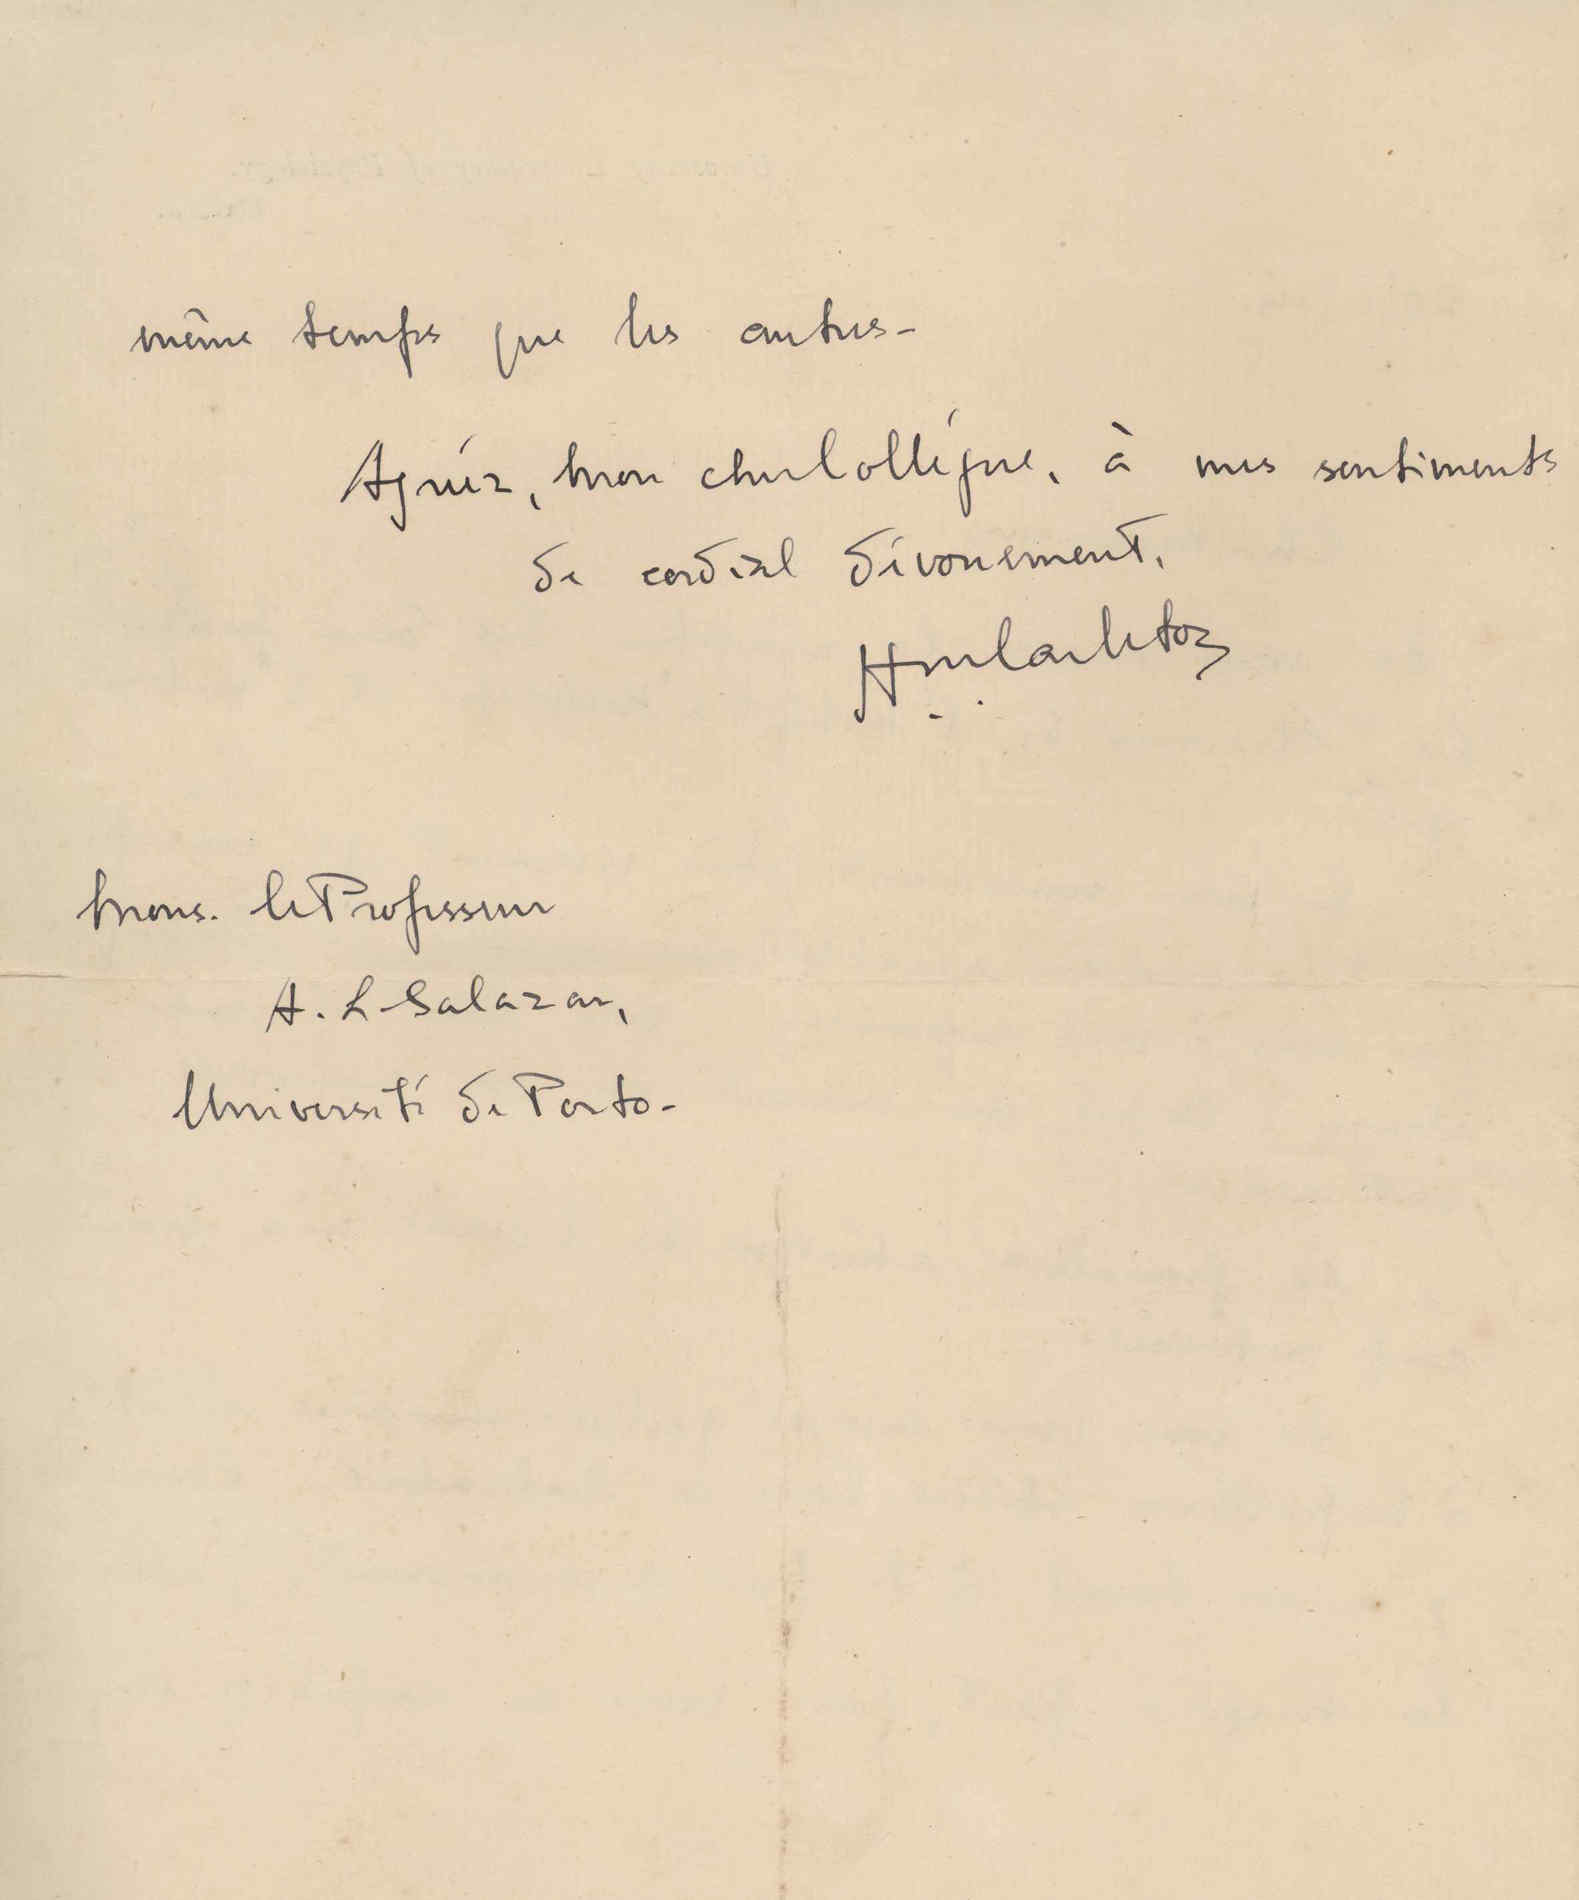 même temps que les autres-
Agréez, mon cher Collégue, à mes sentiments
de cordial dévouement.
Hm Carleton
Mons. le Professeur
A. L Salazar,
Université de Porto-